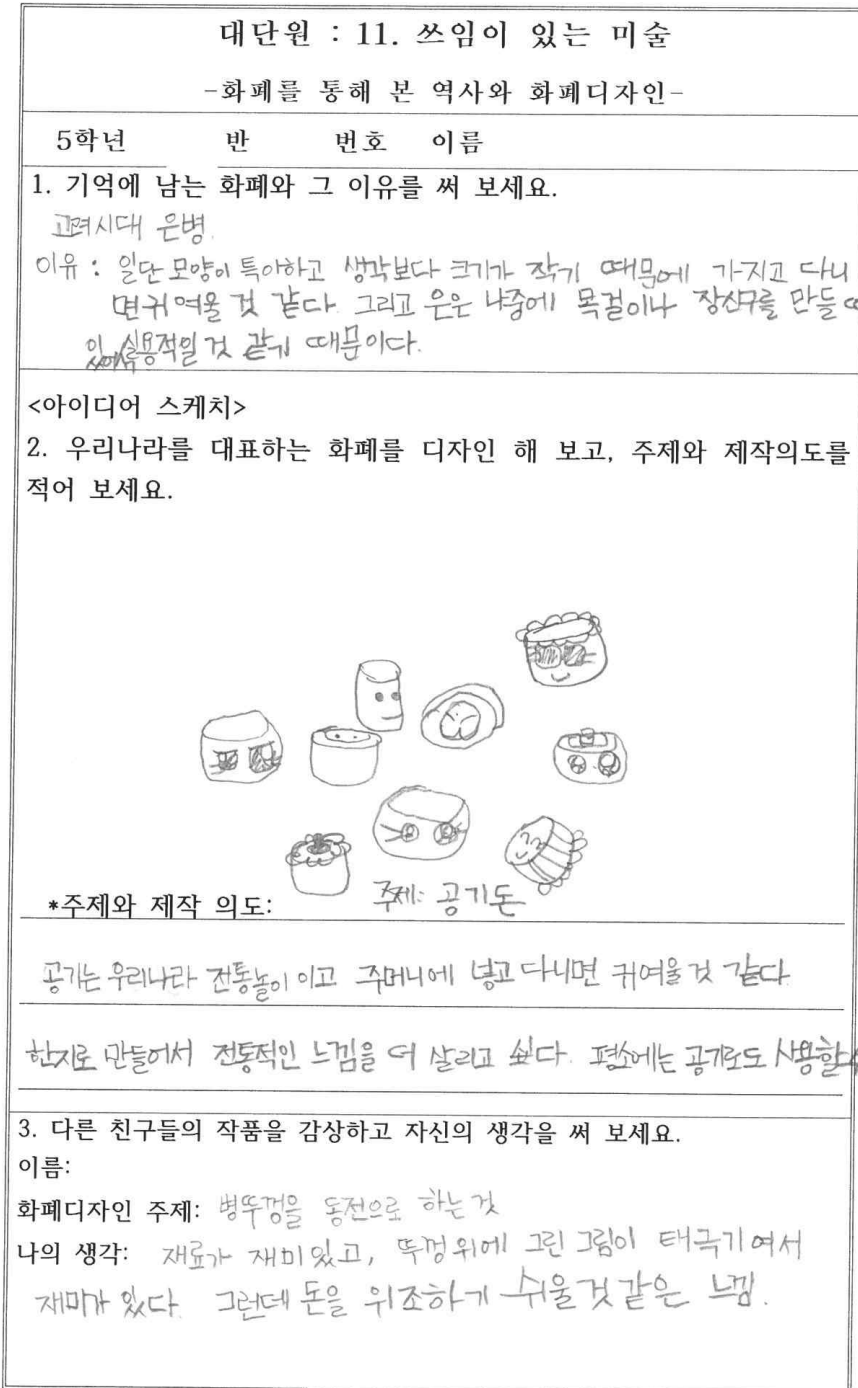 대단원 : 11. 쓰임이 있는 미술
-화폐를 통해 본 역사와 화폐디자인-
5학년 반 번호 이름
1. 기억에 남는 화폐와 그 이유를 써 보세요.
고려시대 은병.
이유 : 일단 모양이 특이하고 생각보다 크기가 작기 때문에 가지고 다니
면 귀여울 것 같다. 그리고 은은 나중에 목걸이나 장신구를 만들
있어 실용적일 것 같기 때문이다.
<아이디어 스케치>
2. 우리나라를 대표하는 화폐를 디자인 해 보고, 주제와 제작의도를
적어 보세요.
*주제와 제작 의도: 주제: 공기돈
공기는 우리나라 전통놀이 이고 주머니에 넣고 다니면 귀여울 것 같다
한지로 만들어서 전통적인 느낌을 더 살리고 싶다. 평소에는 공기로도 사용할
3. 다른 친구들의 작품을 감상하고 자신의 생각을 써 보세요.
이름:
화폐디자인 주제: 병뚜껑을 동전으로 하는 것
나의 생각: 재료가 재미있고, 뚜껑 위에 그린 그림이 태극기여서
재미가 있다. 그런데 돈을 위조하기 쉬울것 같은 느낌.